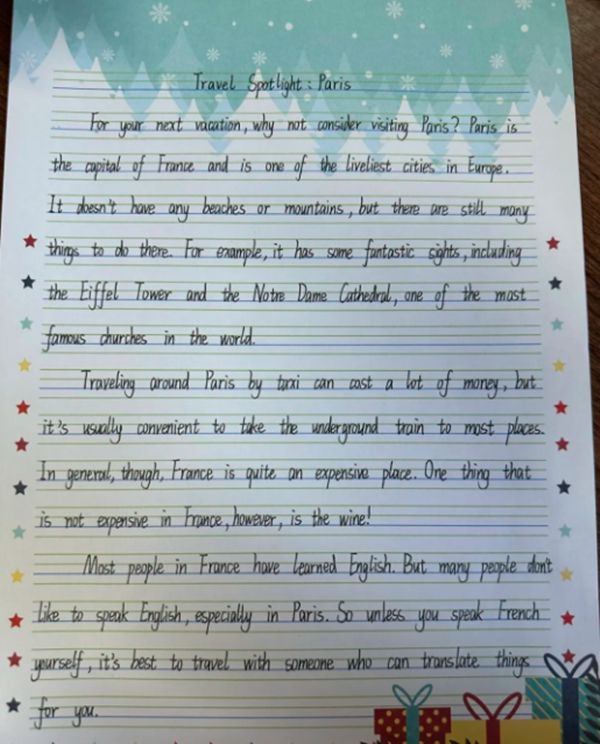 Travel Spotlight : Paris
For your next vacation, why not consider visiting Paris? Paris is
the capital of France and is one of the liveliest cities in Europe.
It doesn't have any beaches or mountains, but there are still many
things to do there. For example, it has some fantastic sights, including
the Eiffel Tower and the Notre Dame Cathedral, one of the most
famous churches in the world.
Traveling around Paris by taxi can cost a lot of money, but
it's usually convenient to take the underground train to most places.
In general, though, France is quite an expensive place. One thing that
is not expensive in France, however, is the wine!
Most people in France have learned English. But many people don't
like to speak English, especially in Paris. So unless you speak French
yourself, it's best to travel with someone who can translate things
for you.